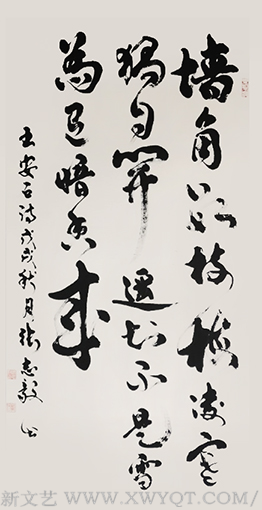 墙角数枝梅凌寒
独自开遥知不是雪
為有暗香来
王安石诗戊戌秋月张志毅书
新文艺 WWW.XWYQT.COM/